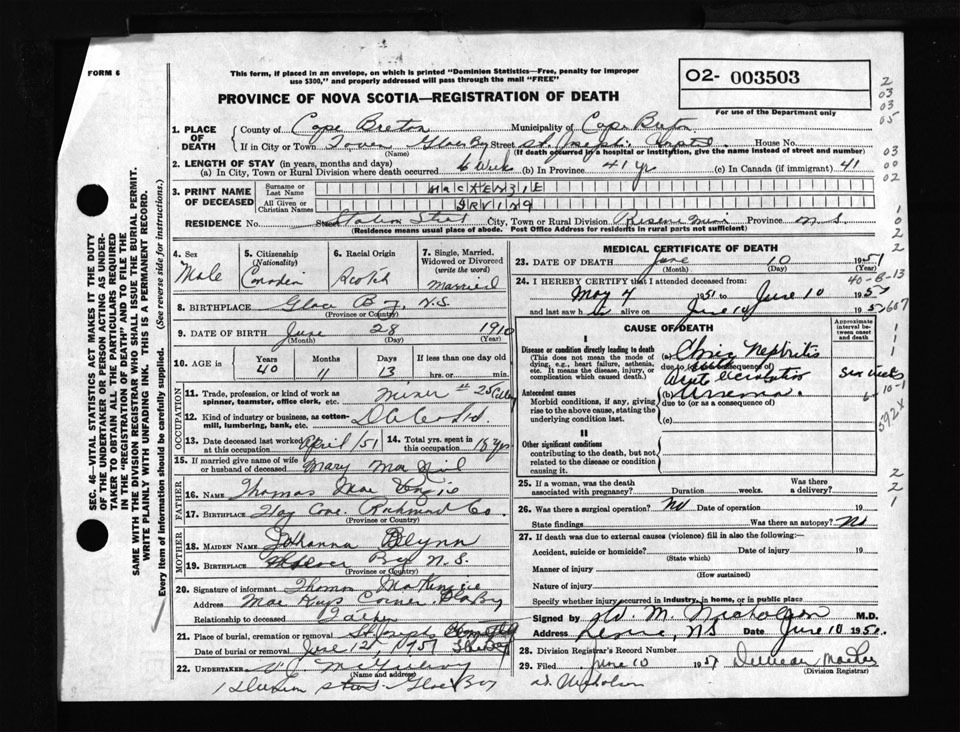 FORM 6
This form, if placed in an envelope, on which is printed "Dominion Statistics—Free, penalty for improper
use $300," and properly addressed will pass through the mail "FREE"
02- 003503
For use of the Department only
PROVINCE OF NOVA SCOTIA—REGISTRATION OF DEATH
1. PLACE OF DEATH
County of Cape Breton Municipality of Cape Breton
If in City or Town Town Glace Bay Street St. Joseph's House No.
(Name) (If death occurred in a hospital or institution, give the name instead of street and number)
2. LENGTH OF STAY (in years, months and days)
(a) In City, Town or Rural Division where death occurred 6 Weeks (b) In Province 41 yr (c) In Canada (if immigrant) 41
3. PRINT NAME OF DECEASED
Surname or Last Name MACKENZIE
All Given or Christian Names IRVING
RESIDENCE No. Street Station Street City, Town or Rural Division Reserve Mines Province N.S.
(Residence means usual place of abode. Post Office Address for residents in rural parts not sufficient)
4. Sex Male
5. Citizenship (Nationality) Canadian
6. Racial Origin Scotch
7. Single, Married, Widowed or Divorced (write the word) Married
8. BIRTHPLACE Glace Bay N.S.
(Province or Country)
9. DATE OF BIRTH June 28 1910
(Month) (Day) (Year)
10. AGE in Years Months Days If less than one day old
40 11 13 hrs. or min.
OCCUPATION
11. Trade, profession, or kind of work as spinner, teamster, office clerk, etc. Miner 25
12. Kind of industry or business, as cotton-mill, lumbering, bank, etc.
13. Date deceased last worked at this occupation April/51
14. Total yrs. spent in this occupation 18 yrs
15. If married give name of wife or husband of deceased Mary MacNeil
FATHER
16. NAME Thomas MacKenzie
17. BIRTHPLACE Hay Cove Richmond Co.
(Province or Country)
MOTHER
18. MAIDEN NAME Johanna Flynn
19. BIRTHPLACE Glace Bay N.S.
(Province or Country)
20. Signature of informant Thomas MacKenzie
Address MacKays Corner, Gla Bay
Relationship to deceased Father
21. Place of burial, cremation or removal St. Josephs
Date of burial or removal June 12, 1951
22. UNDERTAKER V. J. McGillivray
(Name and address)
Glace Bay
MEDICAL CERTIFICATE OF DEATH
23. DATE OF DEATH June 10 1951
(Month) (Day) (Year)
24. I HEREBY CERTIFY that I attended deceased from:
May 4 1951 to June 10 1951
and last saw h alive on June 10 1951
CAUSE OF DEATH
Approximate interval between onset and death
I
Disease or condition directly leading to death
(This does not mean the mode of dying, e.g., heart failure, asthenia, etc. It means the disease, injury, or complication which caused death.)
(a) Chronic Nephritis
due to (or as a consequence of)
Six weeks
Antecedent causes
Morbid conditions, if any, giving rise to the above cause, stating the underlying condition last.
(b) Uraemia.
due to (or as a consequence of)
(c)
II
Other significant conditions
contributing to the death, but not related to the disease or condition causing it.
25. If a woman, was the death associated with pregnancy? Duration weeks. Was there a delivery?
26. Was there a surgical operation? No Date of operation 19
State findings Was there an autopsy? No
27. If death was due to external causes (violence) fill in also the following:—
Accident, suicide or homicide? Date of injury 19
(State which)
Manner of injury
(How sustained)
Nature of injury
Specify whether injury occurred in industry, in home, or in public place
Signed by M. Nicholson M.D.
Address Reserve, NS Date June 10 1951.
28. Division Registrar's Record Number
29. Filed June 10 1951 Duncan
(Division Registrar)
SEC. 46—VITAL STATISTICS ACT MAKES IT THE DUTY
OF THE UNDERTAKER OR PERSON ACTING AS UNDER-
TAKER TO OBTAIN ALL THE PARTICULARS REQUIRED
IN THE "REGISTRATION OF DEATH" AND TO FILE THE
SAME WITH THE DIVISION REGISTRAR WHO SHALL ISSUE THE BURIAL PERMIT.
WRITE PLAINLY WITH UNFADING INK. THIS IS A PERMANENT RECORD.
Every item of information should be carefully supplied. (See reverse side for instructions.)
2
03
03
05
03
00
02
40-8-13
607
10-1
592x